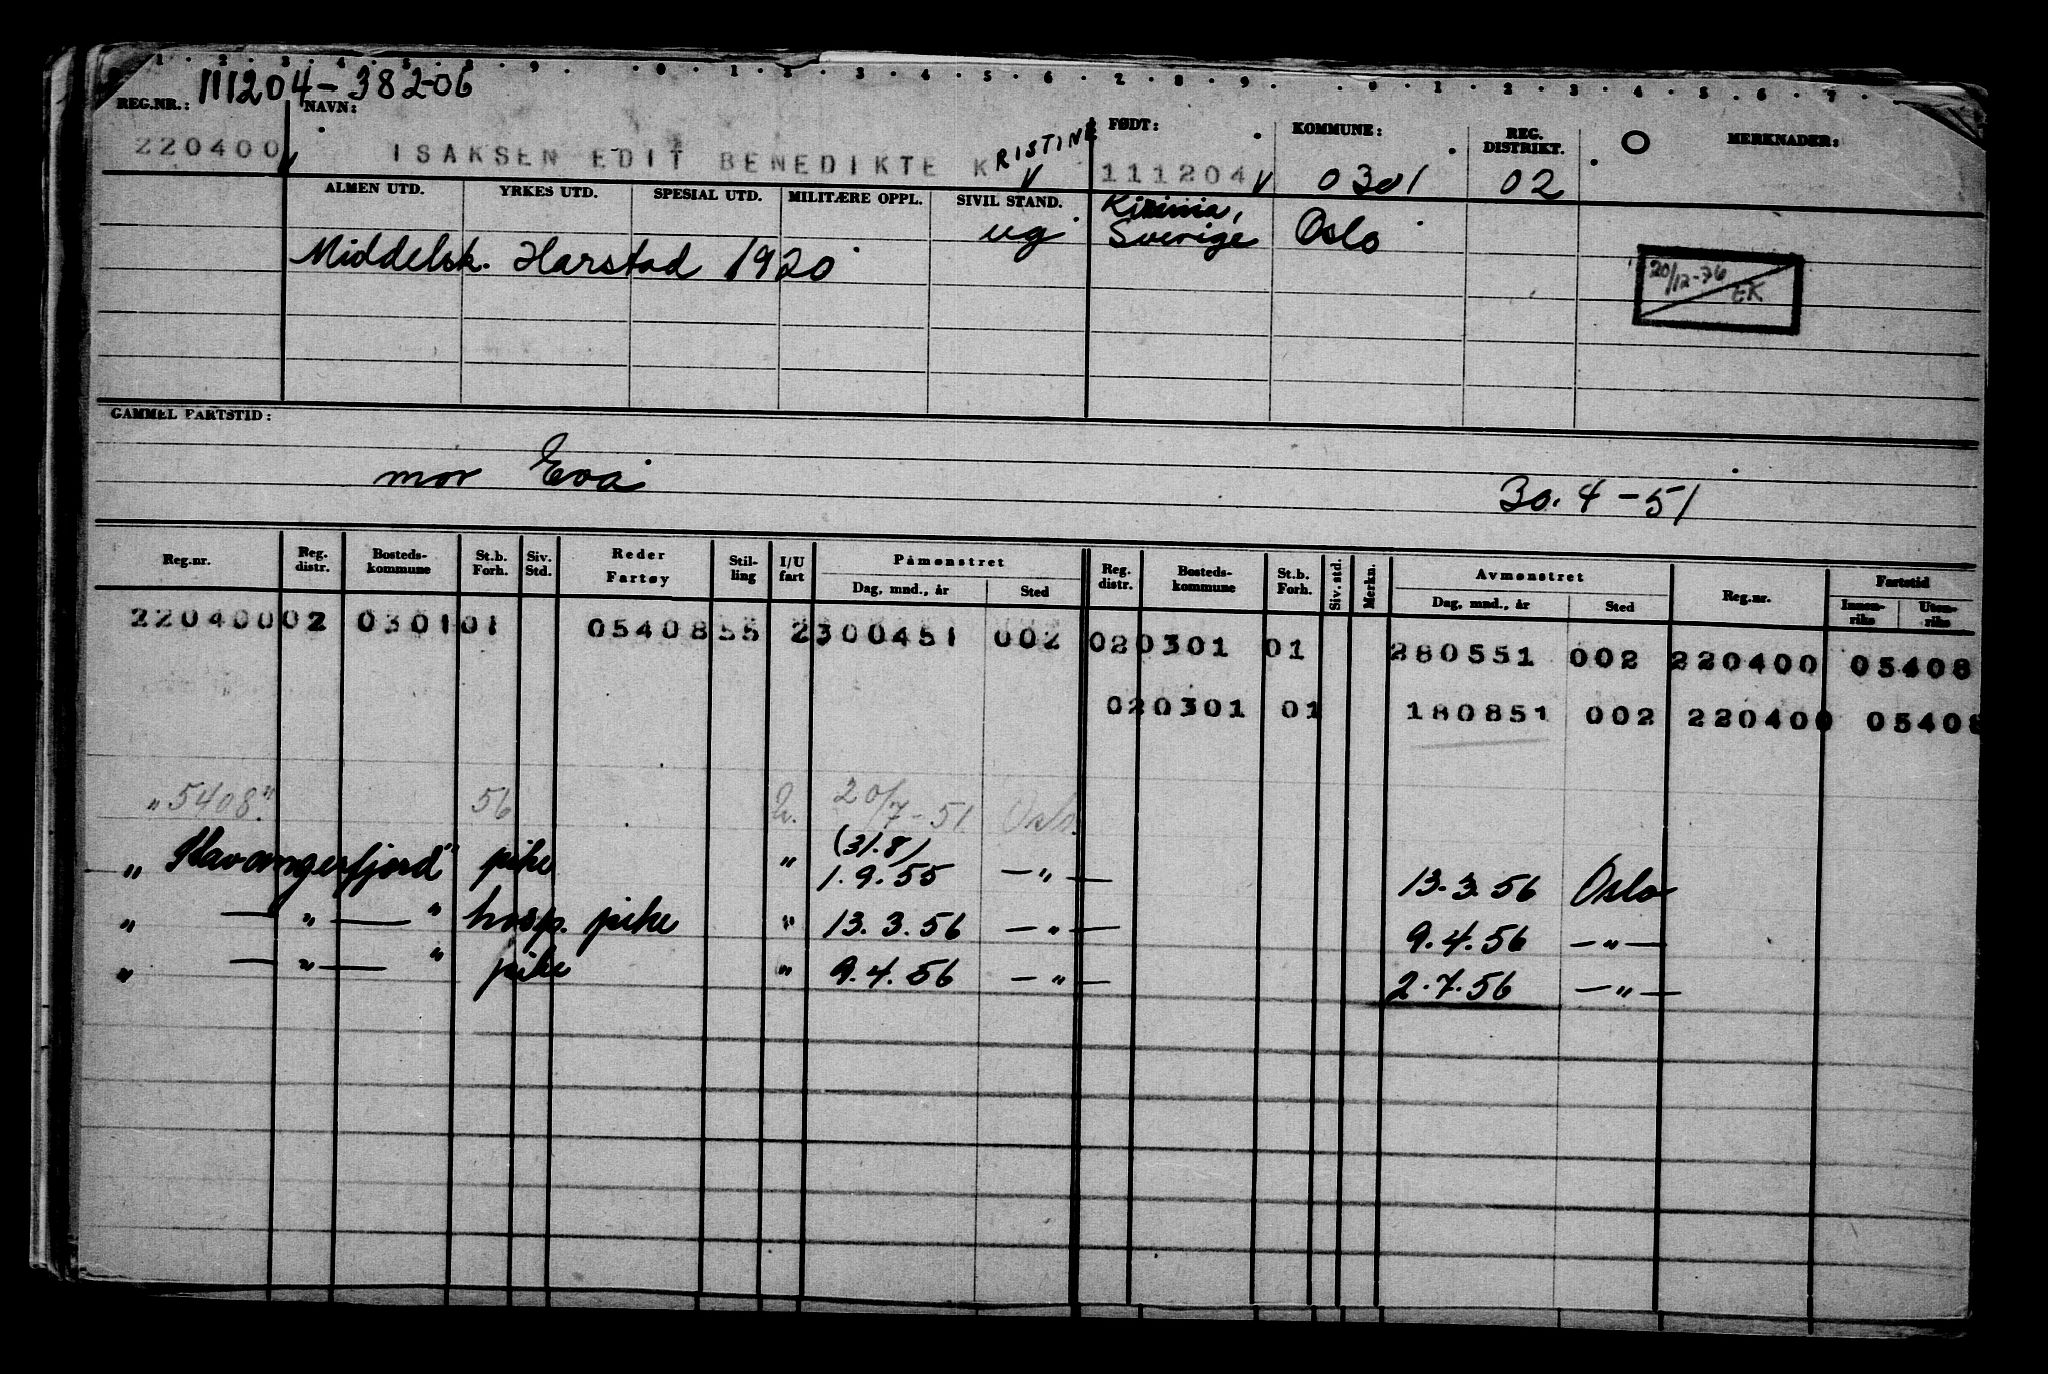 111204-38206
REG.NR.: NAVN: FØDT: KOMMUNE: REG. DISTRIKT. MERKNADER:
220400 ISAKSEN EDIT BENEDIKTE KRISTINE 111204 0301 02
ALMEN UTD. YRKES UTD. SPESIAL UTD. MILITÆRE OPPL. SIVIL STAND.
ug Sverige Oslo
Middelsk. Harstad 1920
20/12-76 EK
GAMMEL FARTSTID:
mor Eva 30.4-51
Reg.nr. Reg. distr. Bosteds-kommune St.b. Forh. Siv. Std. Reder Fartøy Stil-ling I/U fart Påmønstret Reg. distr. Bosteds-kommune St.b. Forh. Siv. std. Merkn. Avmønstret Reg.nr. Fartstid
Dag, mnd., år Sted Dag, mnd., år Sted Innen-riks Uten-riks
220400 02 0301 01 05408 55 2 300451 002 02 0301 01 280551 002 220400 05408
02 0301 01 180851 002 220400 05408
"5408" 56 U. 20/7-51 Oslo
(31.8)
" Stavangerfjord" pike " 1.9.55 —"— 13.3.56 Oslo
" —"—" hosp. pike " 13.3.56 —"— 9.4.56 —"—
" —"—" pike " 9.4.56 —"— 2.7.56 —"—